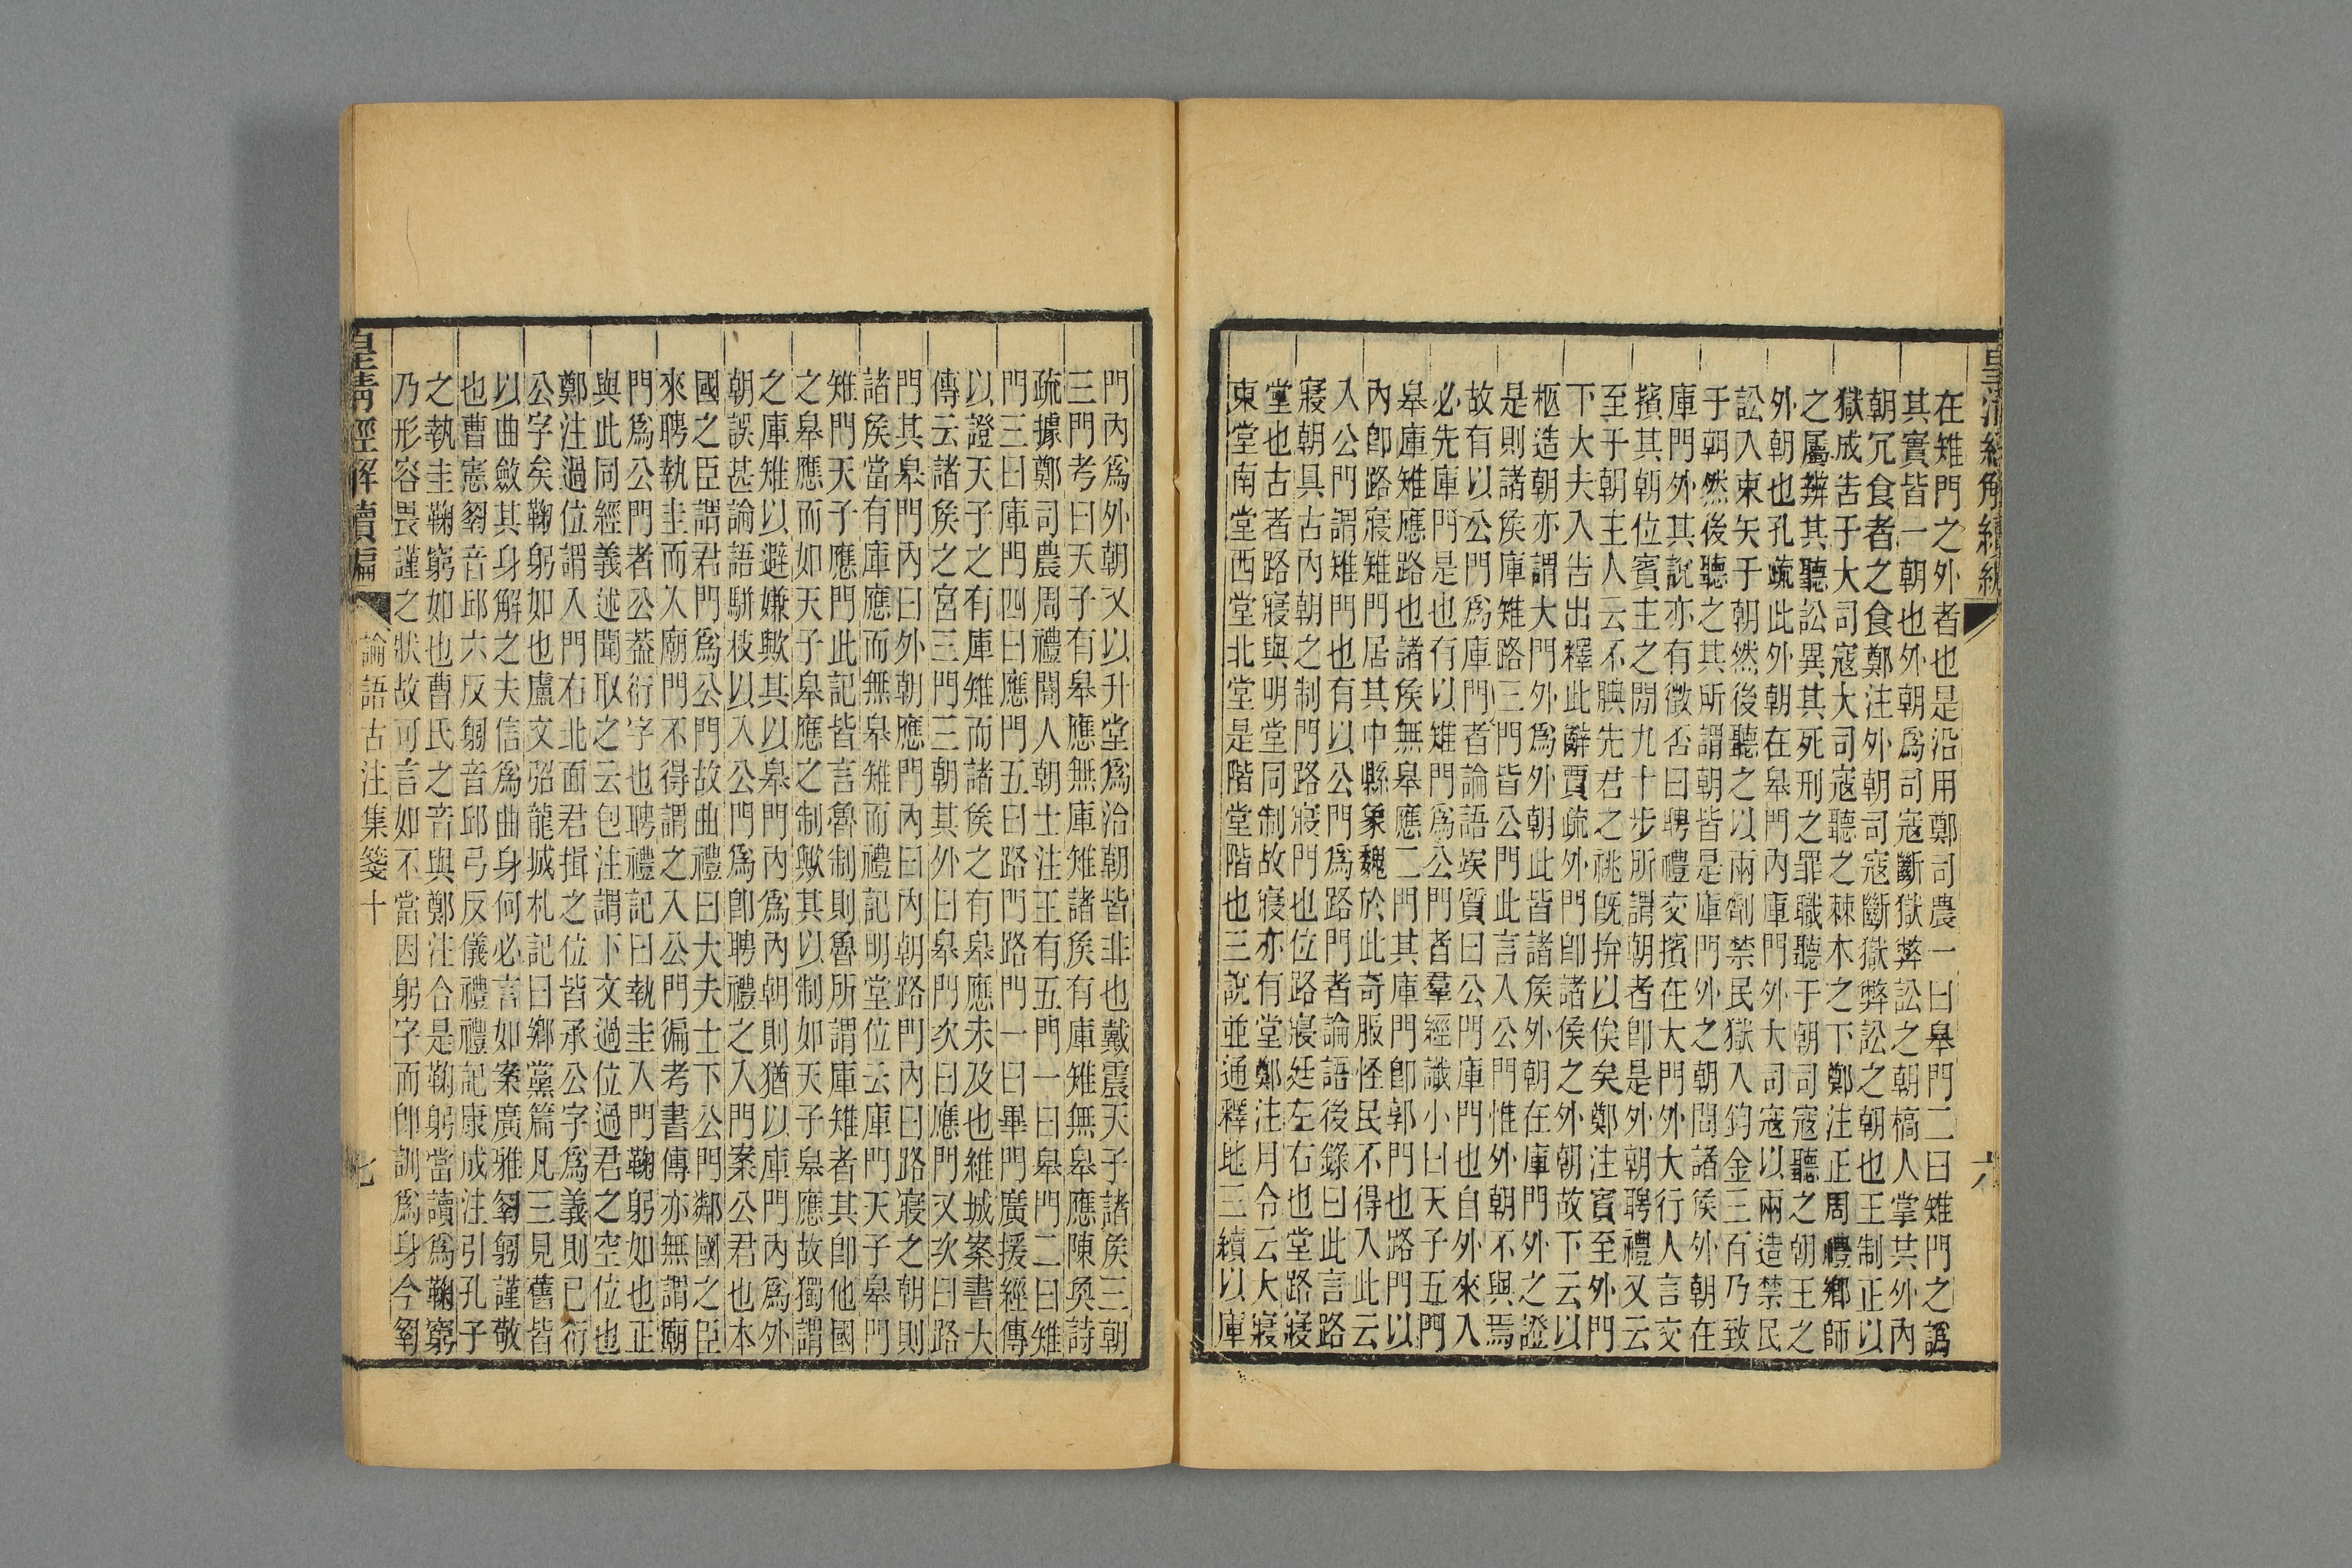 皇清經解續編
六
在雉門之外者也是沿用鄭司農一曰皋門二曰雉門之譌
其實皆一朝也外朝爲司寇斷獄弊訟之朝槁人掌其外內
朝冗食者之食鄭注外朝司寇斷獄弊訟之朝也王制正以
獄成告于大司寇大司寇聽之棘木之下鄭注正周禮鄉師
之屬辨其聽訟異其死刑之罪職聽于朝司寇聽之朝王之
外朝也孔疏此外朝在皋門內庫門外大司寇以兩造禁民
訟入束矢于朝然後聽之以兩劑禁民獄入鈞金三百乃致
于朝然後聽之其所謂朝皆是庫門外之朝問諸矦外朝在
庫門外其說亦有徵否曰聘禮交擯在大門外大行人言交
擯其朝位賓主之閒九十步所謂朝者卽是外朝聘禮又云
至于朝主人云不腆先君之祧旣拚以俟矣鄭注賓至外門
下大夫入告出釋此辭賈疏外門卽諸侯之外朝故下云以
柩造朝亦謂大門外爲外朝此皆諸矦外朝在庫門外之證
是則諸矦庫雉路三門皆公門此言入公門惟外朝不與焉
故有以公門爲庫門者論語竢質曰公門庫門也自外來入
必先庫門是也有以雉門爲公門者羣經識小曰天子五門
皋庫雉應路也諸矦無皋應二門其庫門卽郭門也路門以
內卽路寢雉門居其中縣象魏於此奇服怪民不得入此云
入公門謂雉門也有以公門爲路門者論語後錄曰此言路
寢朝具古內朝之制門路寢門也位路寢廷左右也堂路寢
堂也古者路寢與明堂同制故寢亦有堂鄭注月令云大寢
東堂南堂西堂北堂是階堂階也三說並通釋地三續以庫
門內爲外朝又以升堂爲治朝皆非也戴震天子諸矦三朝
三門考曰天子有皋應無庫雉諸矦有庫雉無皋應陳奐詩
疏據鄭司農周禮閽人朝士注王有五門一曰皋門二曰雉
門三曰庫門四曰應門五曰路門路門一曰畢門廣援經傳
以證天子之有庫雉而諸矦之有皋應未及也維城案書大
傳云諸矦之宮三門三朝其外曰皋門次曰應門又次曰路
門其皋門內曰外朝應門內曰內朝路門內曰路寢之朝則
諸矦當有庫應而無皋雉而禮記明堂位云庫門天子皋門
雉門天子應門此記皆言魯制則魯所謂庫雉者其卽他國
之皋應而如天子皋應之制歟其以制如天子皋應故獨謂
之庫雉以避嫌歟其以皋門內爲內朝則猶以庫門內爲外
朝誤甚論語駢枝以入公門爲卽聘禮之入門案公君也本
國之臣謂君門爲公門故曲禮曰大夫士下公門鄰國之臣
來聘執圭而入廟門不得謂之入公門徧考書傳亦無謂廟
門爲公門者公葢衍字也聘禮記曰執圭入門鞠躬如也正
與此同經義述聞取之云包注謂下文過位過君之空位也
鄭注過位謂入門右北面君揖之位皆承公字爲義則已衍
公字矣鞠躬如也盧文弨龍城札記曰鄉黨篇凡三見舊皆
以曲斂其身解之夫信爲曲身何必言如案廣雅匑匑謹敬
也曹憲匑音邱六反匑音邱弓反儀禮禮記康成注引孔子
之執圭鞠窮如也曹氏之音與鄭注合是鞠躬當讀爲鞠窮
乃形容畏謹之狀故可言如不當因躬字而卽訓爲身今匑
皇清經解續編
論語古注集箋十
七